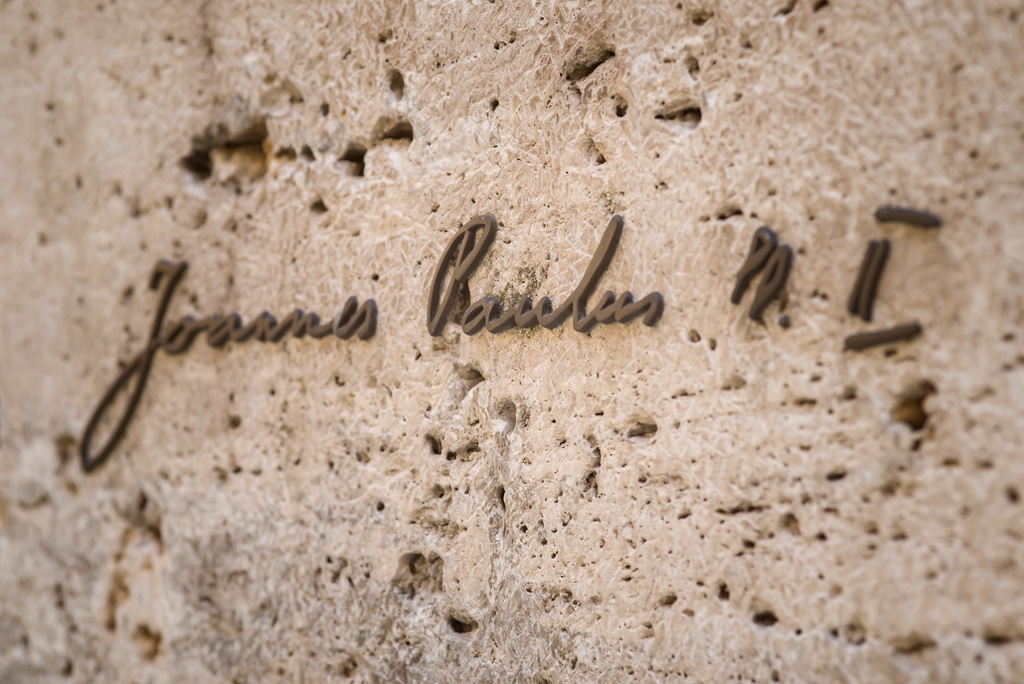 Joannes Paulus PP. II